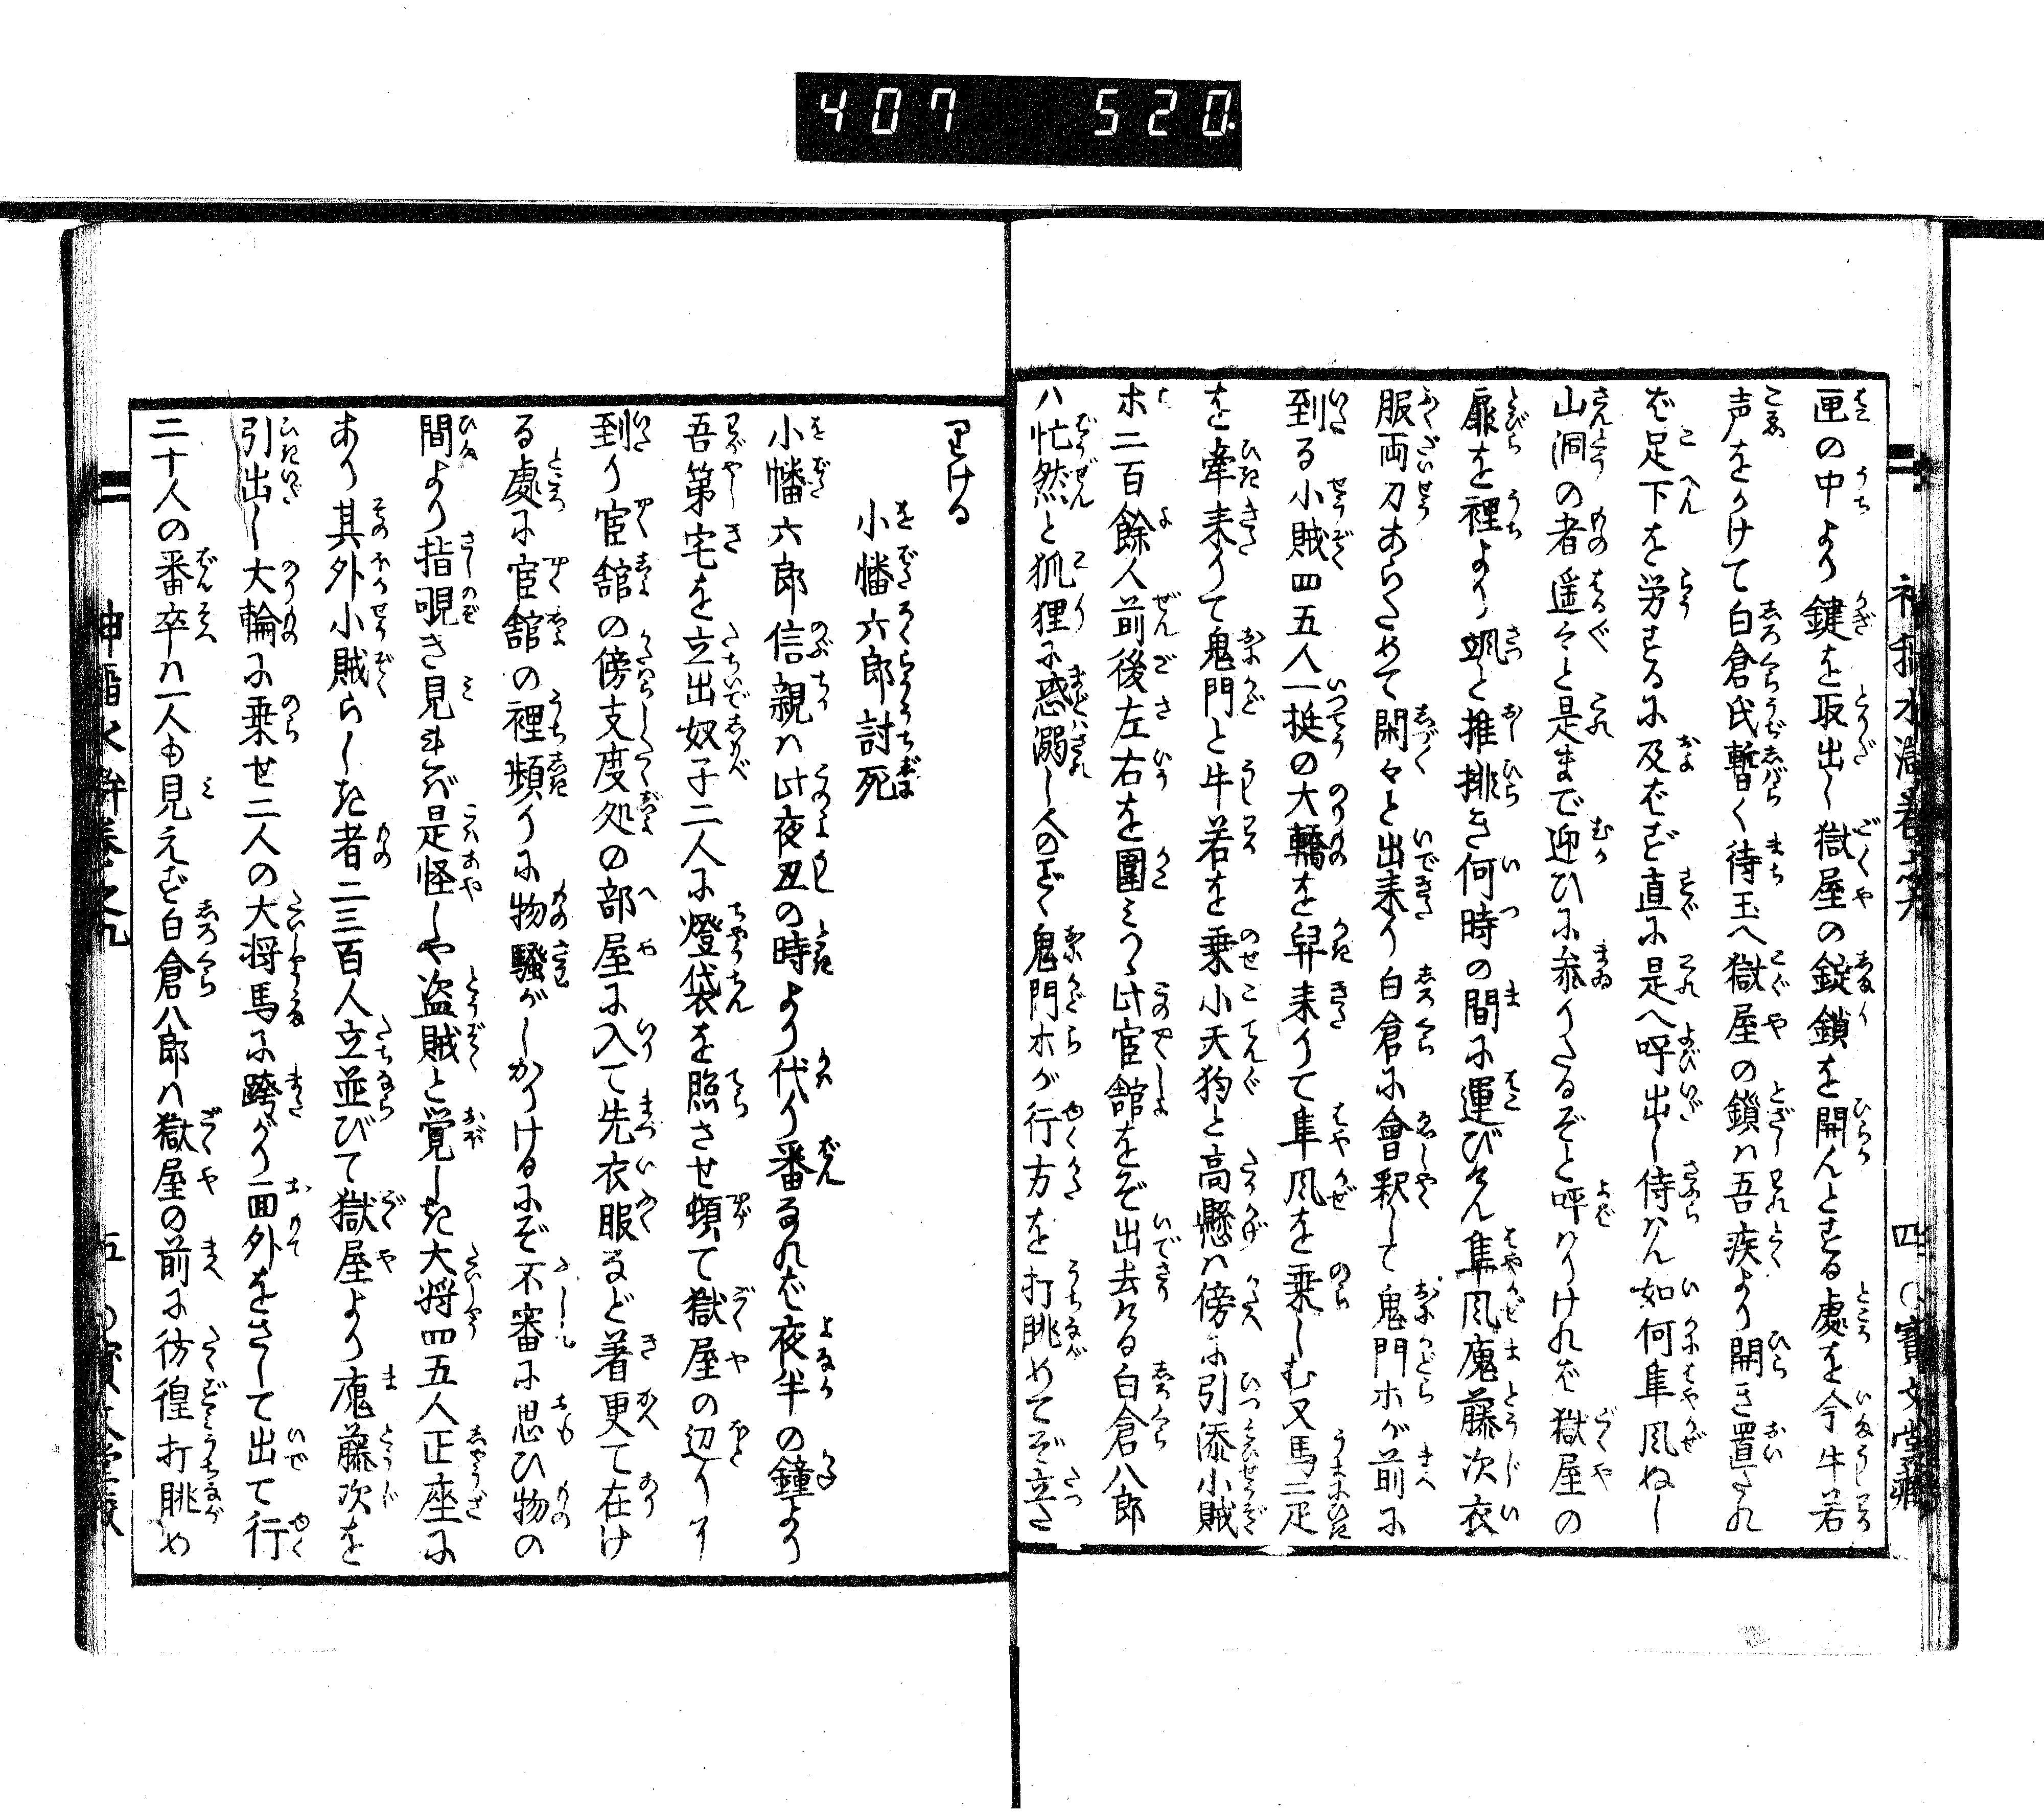 407 520
匣の中より鍵を取出し獄屋の錠鎖を開んとする處を今牛若
声をかけて白倉氏暫く待玉へ獄屋の鎖ハ吾疾より開き置たれ
ば足下を労するに及ばず直に是へ呼出し侍らん如何隼風ねし
山洞の者遥々と是まで迎ひに参りたるぞと呼りければ獄屋の
扉を裡より颯と推排き何時の間に運びけん隼風魔藤次衣
服両刀あらためて閑々と出来り白倉に會釈して鬼門ホが前に
到る小賊四五人一挺の大轎を舁来りて隼風を乗しむ又馬二疋
を牽来りて鬼門と牛若を乗小天狗と高懸ハ傍に引添小賊
ホ二百餘人前後左右を圍ミつゝ此宦舘をぞ出去ける白倉八郎
ハ忙然と狐狸に惑溺し人のごく鬼門ホが行方を打眺めてぞ立さ
四 ○寶文堂藏
りける
小幡六郎討死
小幡六郎信親ハ此夜丑の時より代り番なれば夜半の鐘より
吾第宅を立出奴子二人に燈袋を照させ頓て獄屋の辺りヘ
到り宦舘の傍支度処の部屋に入て先衣服など着更て在け
る處に宦舘の裡頻りに物騒がしかりけるにぞ不審に思ひ物の
間より指覗き見れバ是怪しや盗賊と覚しき大将四五人正座に
あり其外小賊らしき者二三百人立並びて獄屋より魔藤次を
引出し大輪に乗せ二人の大将馬に跨がり面外をさして出て行
二十人の番卒ハ一人も見えず白倉八郎ハ獄屋の前に彷徨打眺め
五